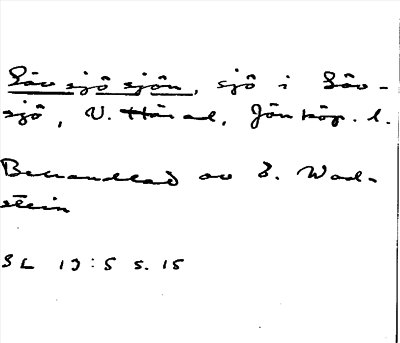 Sävsjösjön, sjö i Säv-
sjö, V. Härad, Jönköp. l.
Behandlad av E. Wad-
stein
SL 13:5 s. 15